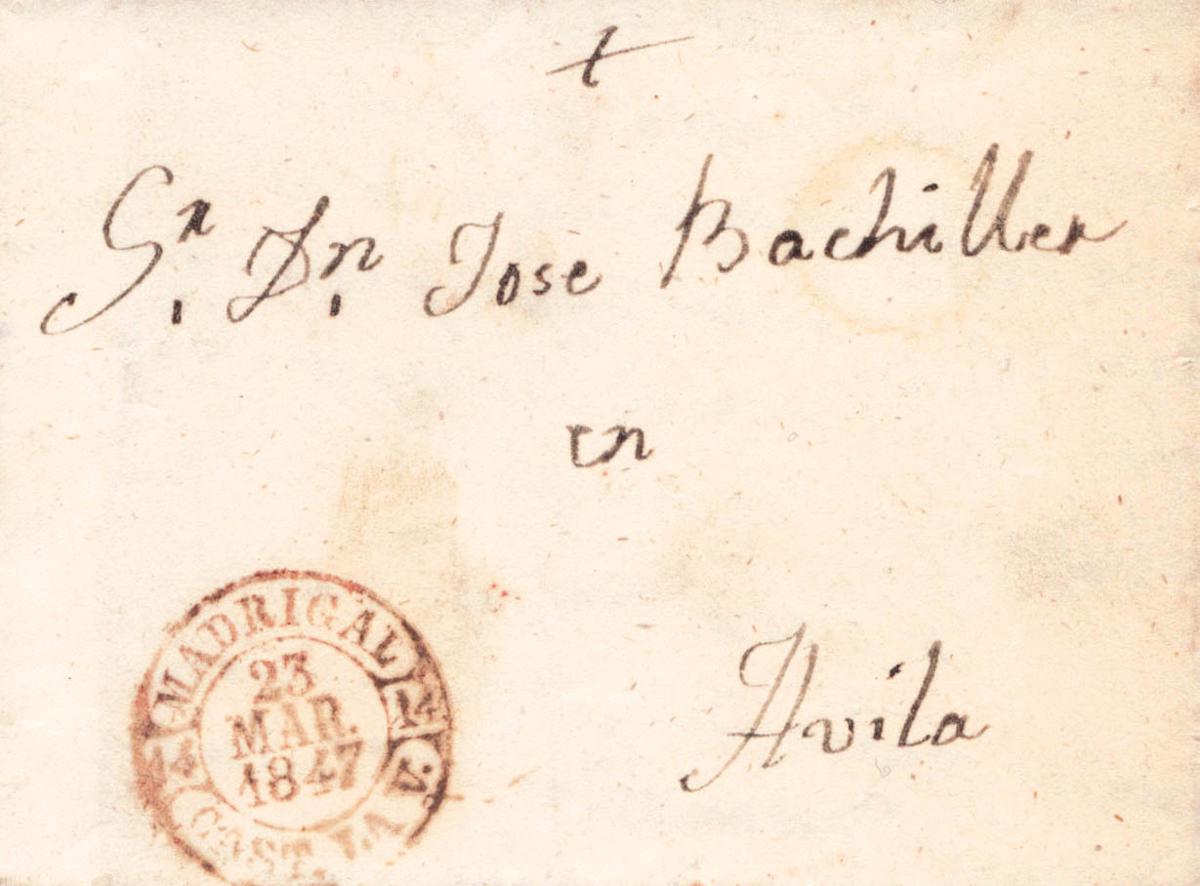 +
Sr. Dn. Jose Bachiller
en
Avila
MADRIGAL
14
23
MAR.
1847
CAST. LA V.